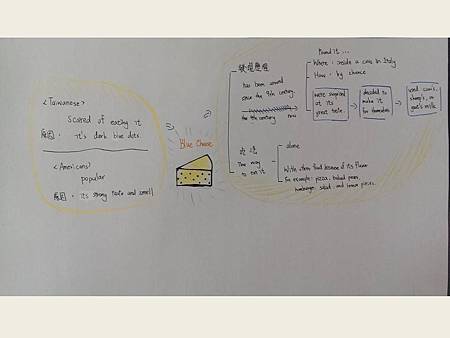 <Taiwanese>
Scared of eating it
原因: it's dark blue dots.
<Americans>
popular
原因: it's strong taste and smell
Blue Cheese
has been around
since the 9th century.
the 9th century now
Found it ...
Where: inside a cave in Italy
How: by chance
were surprised
at its
great taste.
decided to
make it
for themselves
used cow's,
sheep's, or
goat's milk.
吃法
Two ways
to eat it
alone
With other food because of its flavor
For example: pizza, baked pears,
hamburger, salad, and lemon pieces.